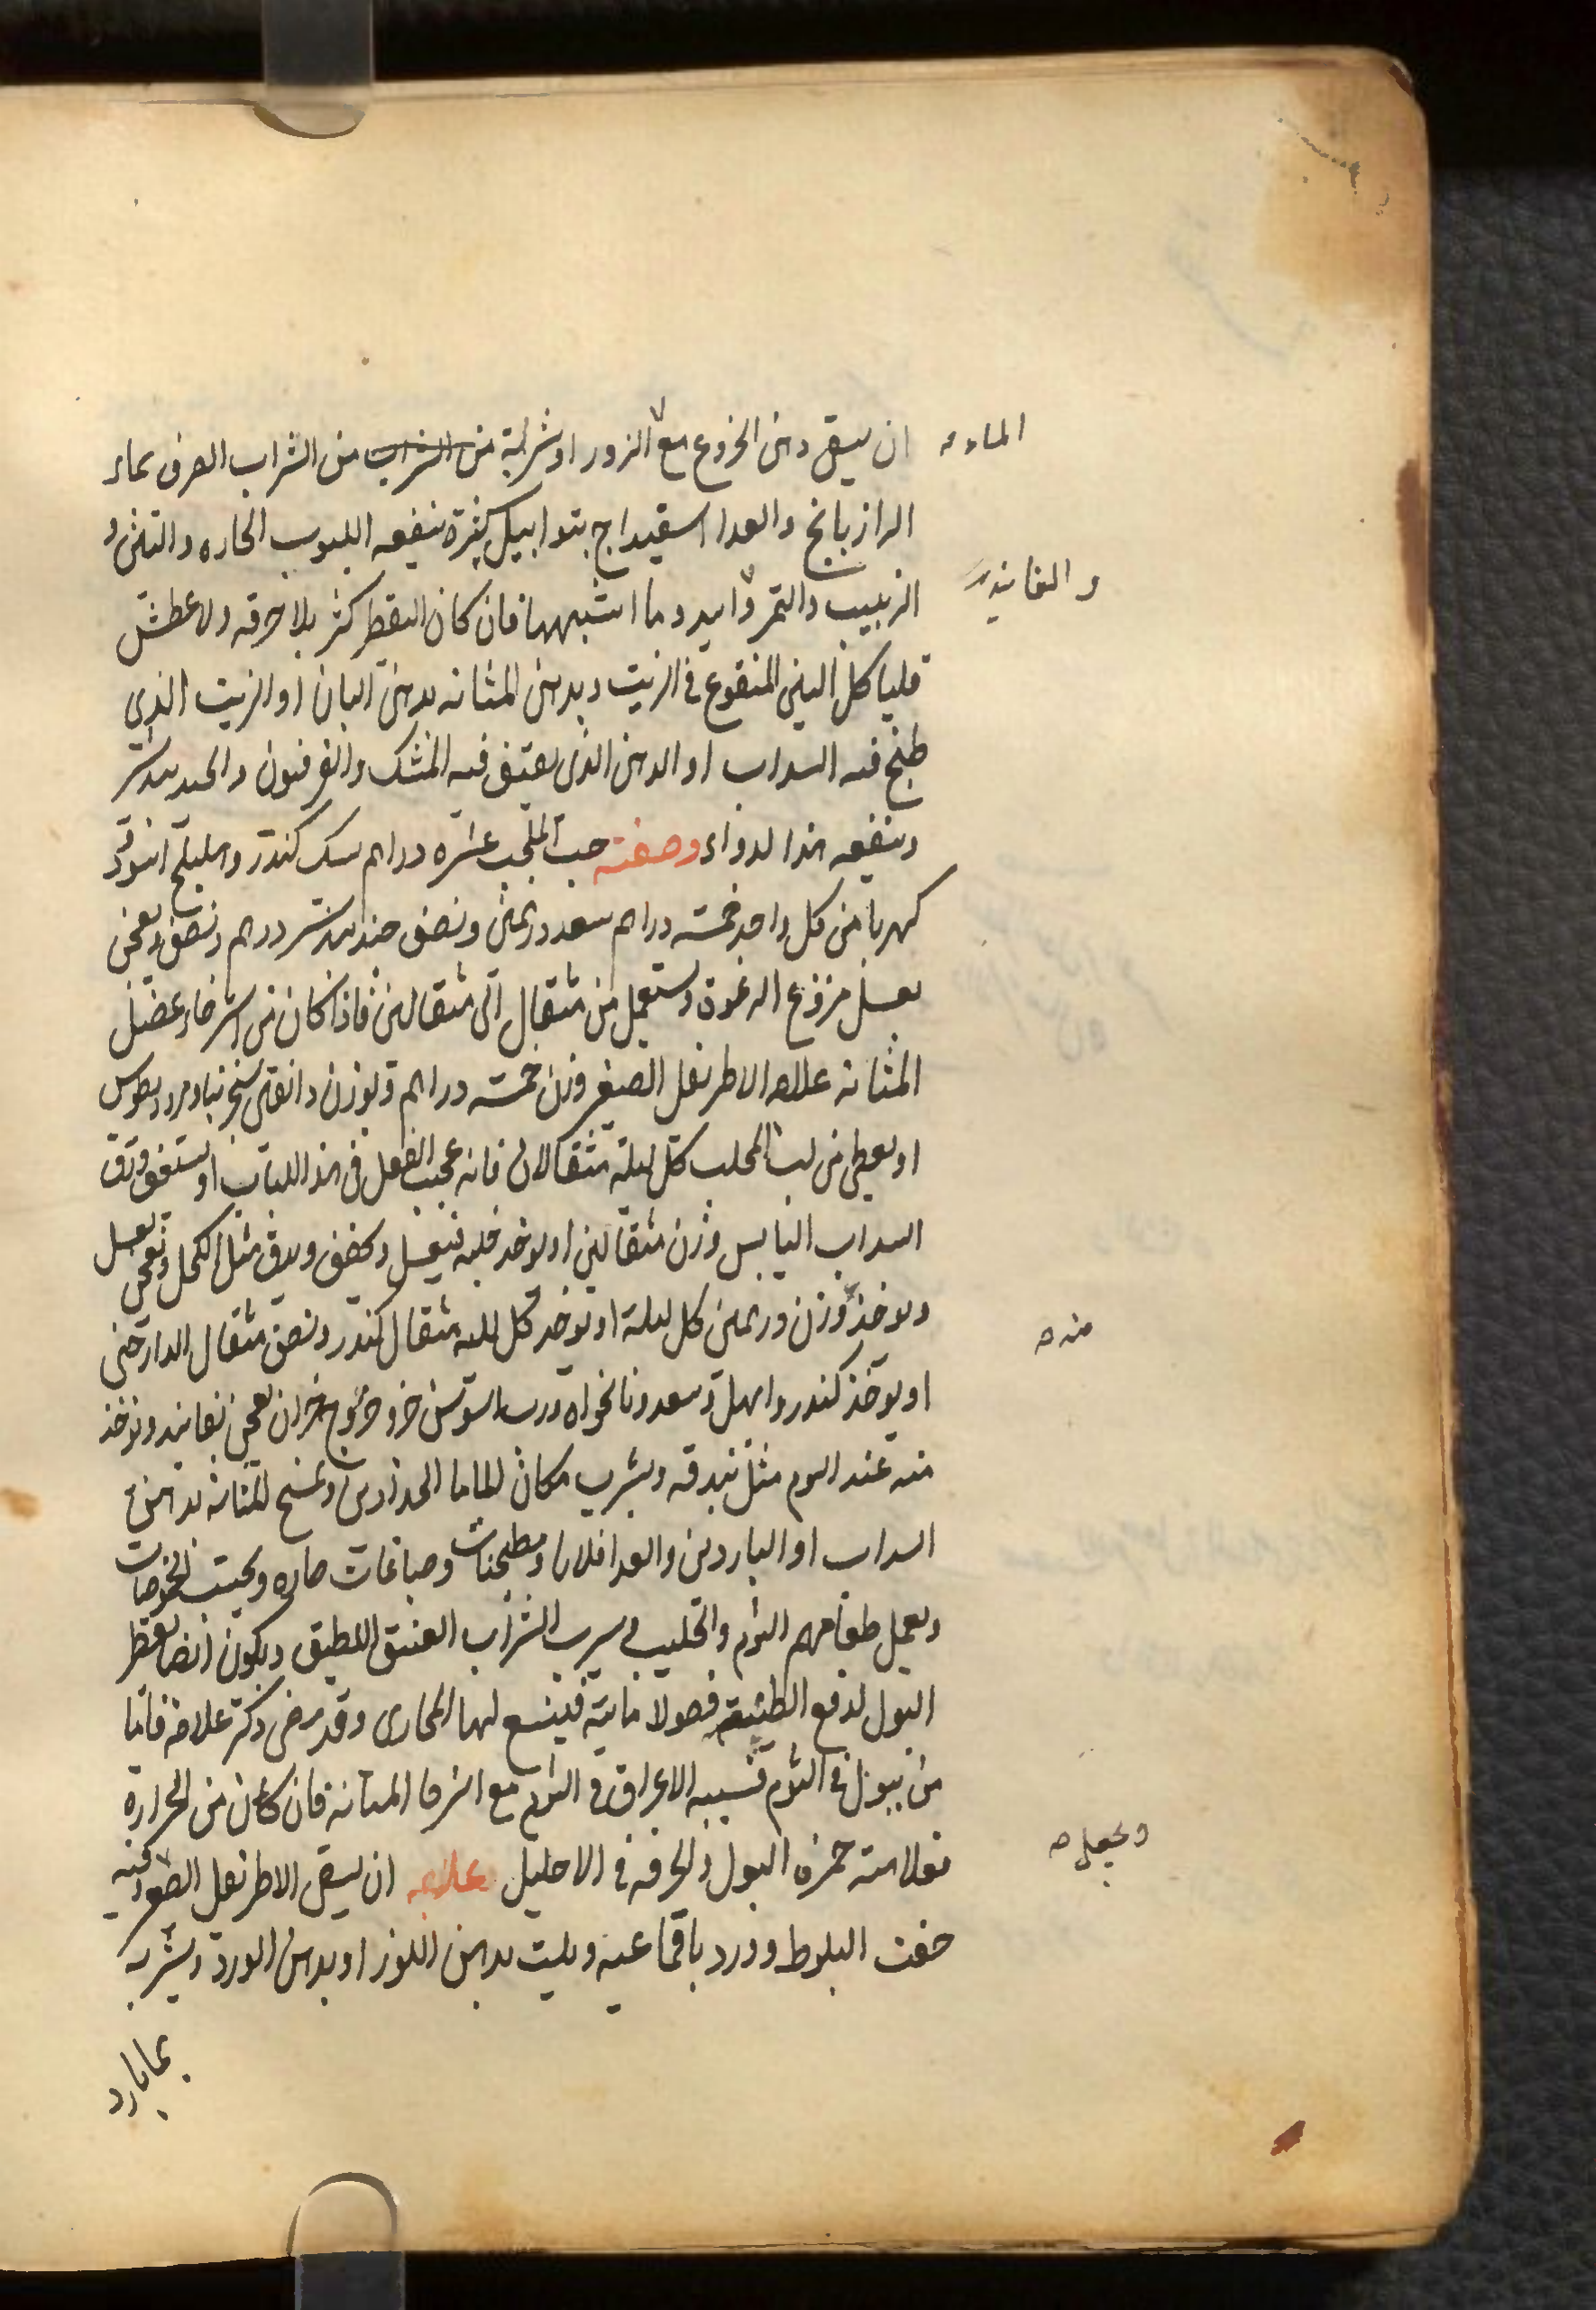 ان يسقى دهن الخروع مع الزور او شربة من الشراب من الشراب الصرف بماء
الماء
الرازيانج والغدا اسقيداج بتوابيل كثيرة ينفعه اللبوب الحاره والتين و
الزبيب والتمر وما اشبهها فان كان التقطر كثر بلا حرقه ولا عطش
والفانيد
فلياكل التين المنقوع في الزيت ويدهن المثانه بدهن البان او الزيت الذي
طبخ فيه السداب او الدهن الذي يعتق فيه المشك والفرفيون والجندبيدستر
وينفعه هذا لدواء وصفته حب المحلب عشره دراهم سك كندر وهليلج اسود
كهربا من كل واحد خمسه دراهم سعد درهمين ونصف جندبيدستر درهم ونصف يعجن
بعسل منزوع الرغوة ويستعمل من مثقال الى مثقالين فاذا كان من استرخاء عضل
المثانه علاجه الاطريفل الصغير وزن خمسه دراهم وبوزن دانقين سجزنيا ومثروديطوس
او يعطى من لب المحلب كل ليلة مثقالان فانه عجيب الفعل في هذا الباب او يستف ورق
السداب اليابس وزن مثقالين او يوخذ حلبه فيغسل ويجفف ويدق مثل الكحل ويعجن بعسل
ويوخذ وزن درهمين كل ليلة او يوخذ كل ليله مثقال كندر ونصف مثقال الدارصيني
منه
او يوخذ كندر وابهل وسعد ونانخواه وراسن يعجن بفانيد ويوخذ
منه عند النوم مثل بندقه ويشرب مكان الماء ما الحدادين ويمسح المثانه بدهن
السداب او الناردين والغدا قلايا ومطجنات وصباغات حاره ويجتنب الحموضات
ويجعل طعامهم الثوم والحليب ويسرب الشراب العتيق اللطيف ويكون ايضا تقطر
البول لدفع الطبيعة فضولا مائية فيتسع لها المجارى وقد مضى ذكر علاجه فاما
من يبول في النوم فسببه الاغراق في النوم مع استرخا المثانه فان كان من الحرارة
ويجعل
فعلامته حمرة البول والحرقه في الاحليل علاجه ان يسقى الاطريفل الصغير
جفت البلوط وورد باقماعيه ويلت بدهن اللوز او بدهن الورد ويشربه
بما بارد